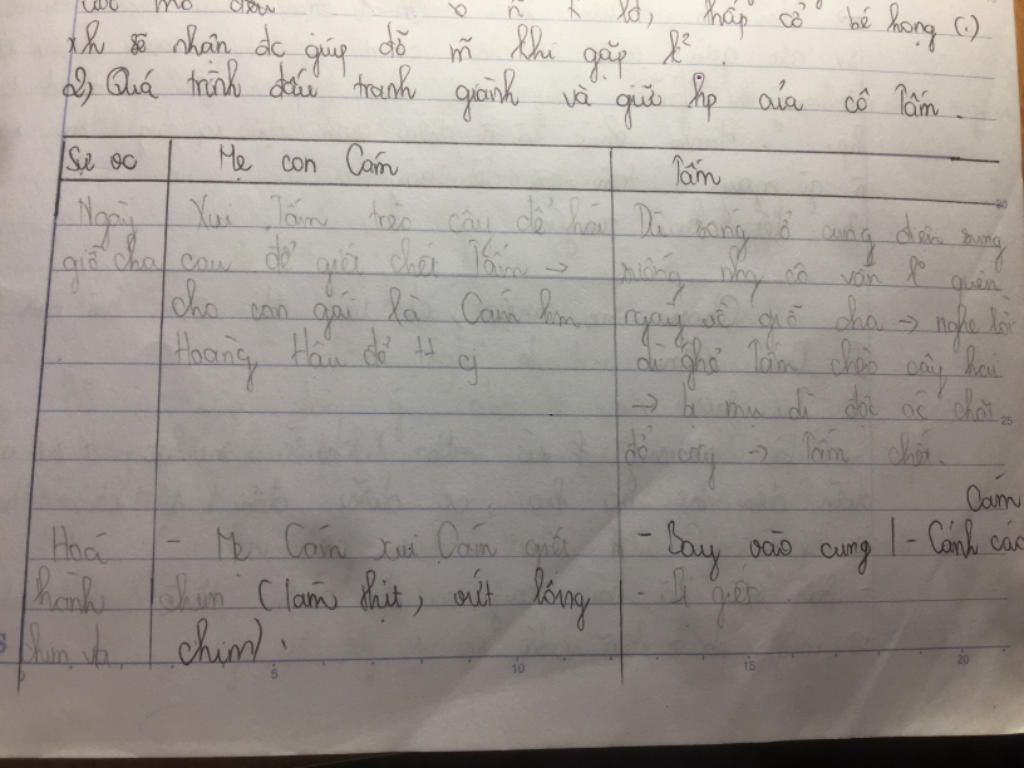 thấp cổ bé họng (.)
xh sẽ nhận dc giúp đỡ mĩ khi gặp k².
2) Quá trình đấu tranh giành và giữ hp của cô Tấm.
Sự vc Mẹ con Cám Tấm
Ngày Xui Tấm trèo cây để hái Dù sống ở cung điện sung
giỗ cha cau để giết chết Tấm → sướng nhg cô vẫn k° quên
cho con gái là Cám làm ngày về giỗ cha → nghe lời
Hoàng Hậu để
dì ghẻ Tấm
→ bị mụ dì độc ác chặt
→ Tấm chết.
Cám
Hoá - Mẹ Cám xui Cám giết - Bay vào cung - Cánh các
thành chim (làm thịt, vứt lông - bị giết
chim và chim).
5 10 15 20
25